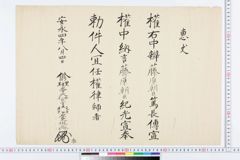 恵丈
權右中辨藤原朝臣篤長傳宣
權中納言藤原朝臣紀光宣奉
勅件人宜任權律師者
安永四年八月四日